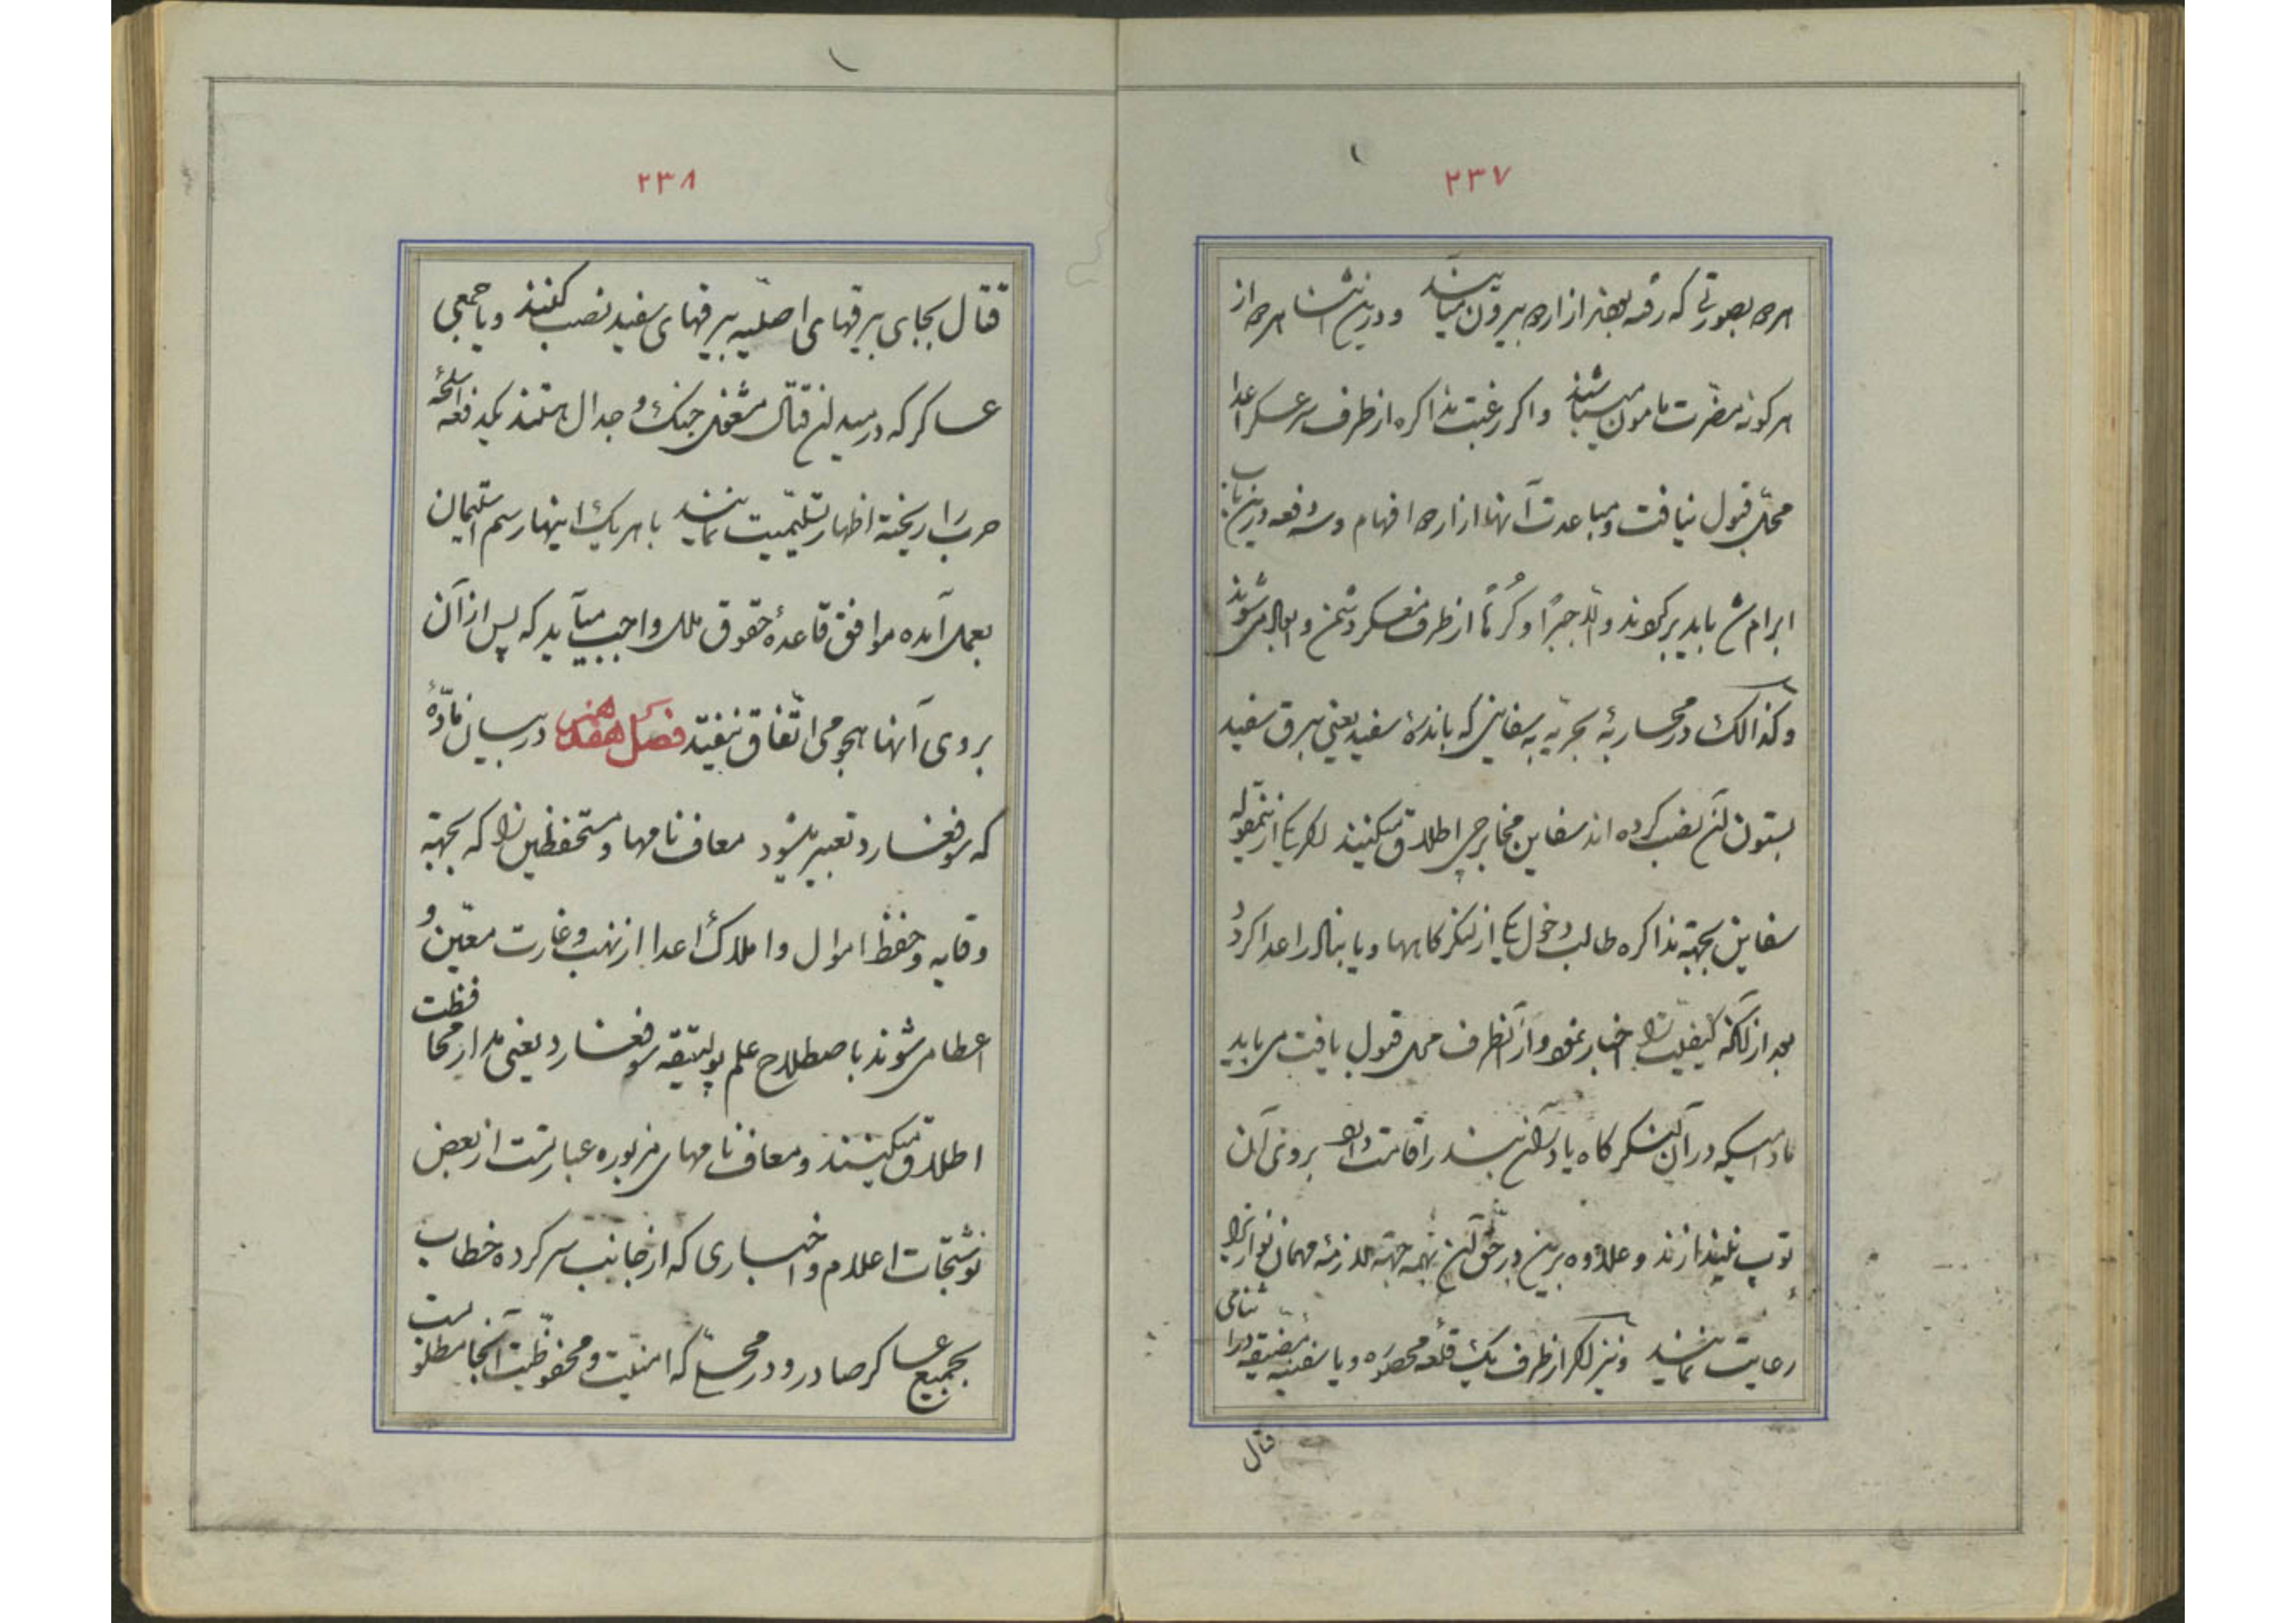 ۲۳۷
همراه بصورتی که رفته بعضی از اردو بیرون میآیند و درین اثنا همراه از
هر کونه مضرت مامون میباشند و اگر رغبت مذاکره از طرف سر عسکر اعدا
محل قبول نیافت و مباعدت آنها از اردو افهام و سه دفعه درین باب
ابرام شد باید برگردند والا جبراً و کُرهاً از طرف معسکر دشمن و ابعاد میشوند
وکذالک در محاربهٔ بحریه به سفاینی که باندرهٔ سفید یعنی بیرق سفید
بستون آن نصب کرده اند سفاین مخابرجی اطلاق میکنند اگر یکی از ینمقوله
سفاین بجهته مذاکره طالب دخول یکی از لنگرگاهها و یا بنادر اعدا گردد
بعد از آنکه کیفیت را اخبار نمود و از آنطرف محل قبول یافت می باید
مادامیکه در آن لنگرگاه یا در آن بندر اقامت دارد بروی آن
توپ نیندازند و علاوه برین در حق آن بهمه جهته لازمهٔ مهمان نوازیرا
رعایت نمایند و نیز اگر از طرف یک قلعه محصوره و یا سفینه مضیقه در اثنای
قتال
۲۳۸
قتال بجای بیرقهای اصلیه بیرقهای سفید نصب کنند و یا جمعی
عساکر که در میدان قتال مشغول جنگ و جدال هستند یکدفعه اسلحهٔ
حرب را ریخته اظهار تسلیمیت نمایند با هر یک اینها رسم استیمان
بعمل آمده موافق قاعدهٔ حقوق ملل واجب میآید که پس از آن
بروی آنها هجومی اتفاق نیفتد فصل هفدهم در بیان مادّهٔ
که سوفغارد تعبیر میشود معاف نامها و مستحفظین را که بجهته
وقایه و حفظ اموال و املاک اعدا از نهب و غارت معین و
اعطا می شوند باصطلاح علم پولیتیقه سوفغارد یعنی مدار محافظت
اطلاق میکنند و معاف نامهای مزبوره عبارتست از بعض
نوشتجات اعلام و اخباری که از جانب سرکرده خطاب
بجمیع عساکر صادر و در محلی که امنیت و محفوظیت آنجا مطلوبست